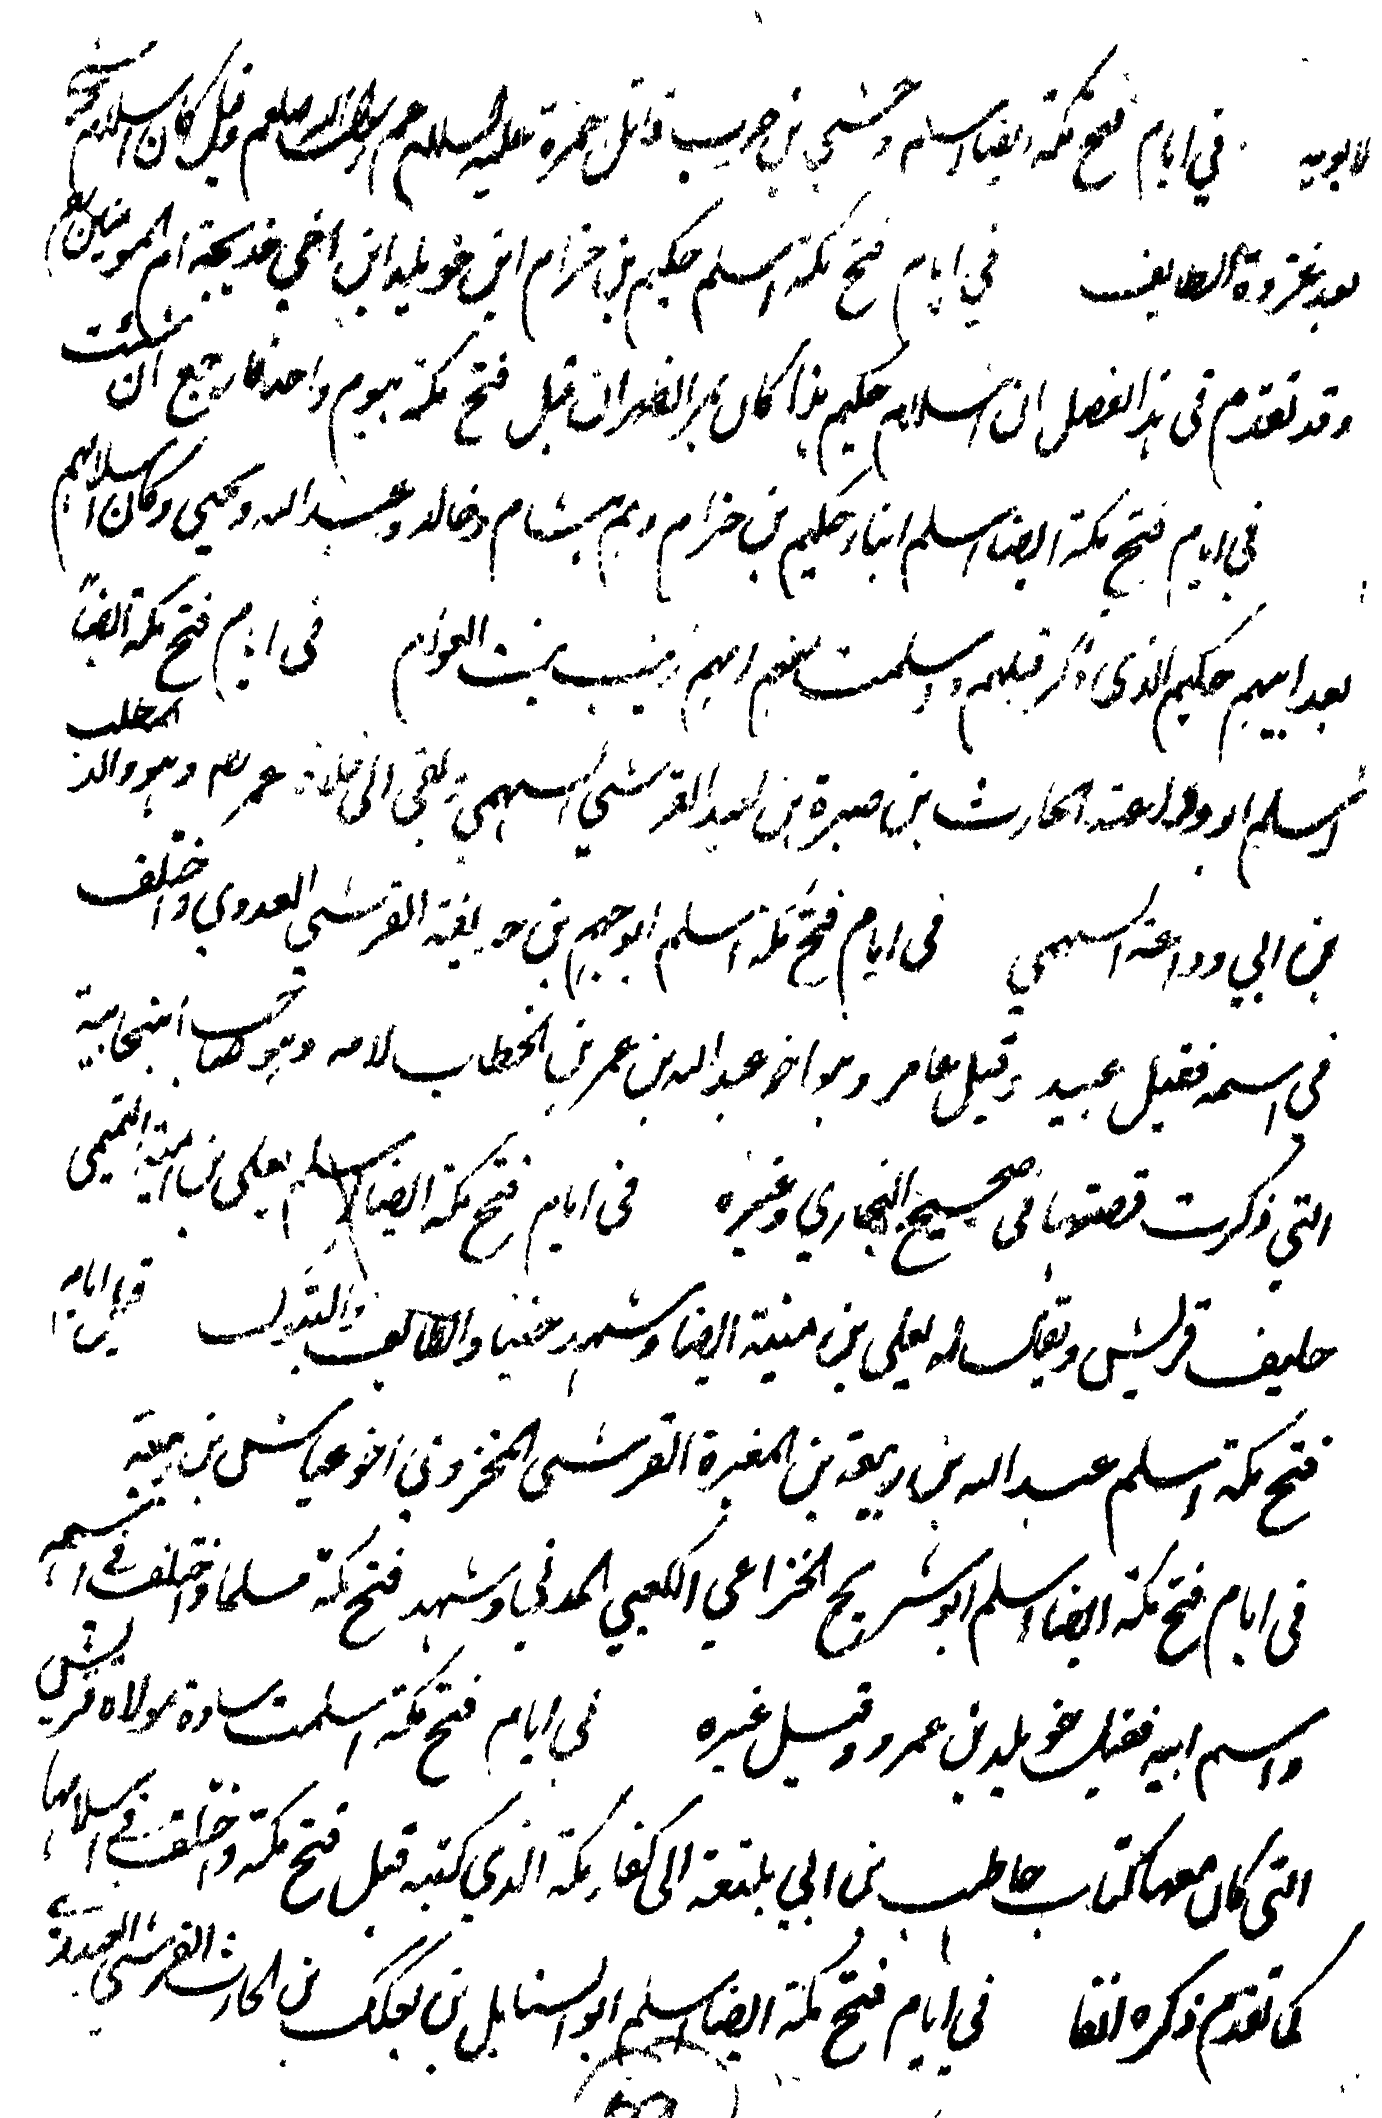 لابويه في ايام فتح مكة ايضا اسلم وحشي بن حرب قاتل حمزة عليه السلام عم رسول الله صلعم وقيل كان اسلامه
بعد غزوة الطايف في ايام فتح مكة اسلم حكيم بن حزام ابن خويلد ابن اخي خديجة ام المومنين
وقد تقدم في هذا الفصل ان اسلام حكيم هذا كان بمر الظهران قبل فتح مكة بيوم واحد فارجع ان شئت
في ايام فتح مكة ايضا اسلم ابناء حكيم بن حزام وهم هشام وخالد وعبد الله ويحيى وكان اسلامهم
بعد ابيهم حكيم الذي ذكر قبلهم واسلمت معهم امهم زينب بنت العوام في ايام فتح مكة ايضا
اسلم ابو وداعة الحارث بن صبرة بن سعيد القرشي السهمي وبقي الى خلافة عمر وهو والد المطلب
بن ابي وداعة السهمي في ايام فتح مكة اسلم ابو جهم بن حذيفة القرشي العدوي واختلف
في اسمه فقيل عبيد وقيل عامر وهو اخو عبد الله بن عمر بن الخطاب لامه وهو صاحب انبجانية
التي ذكرت قصتها في صحيح البخاري وغيره في ايام فتح مكة ايضا اسلم يعلى بن امية التميمي
حليف قريش ويقال له يعلى بن منية ايضا وشهد حنينا والطايف وتبوك في ايام
فتح مكة اسلم عبد الله بن ربيعة بن المغيرة القرشي المخزومي اخو عياش بن ربيعة
في ايام فتح مكة ايضا اسلم ابو شريح الخزاعي الكعبي المدني وشهد فتح مكة مسلما واختلف في اسمه
واسم ابيه فقيل خويلد بن عمرو وقيل غيره في ايام فتح مكة اسلمت سارة مولاة قريش
التي كان معها كتاب حاطب بن ابي بلتعة الى كفار مكة الذي كتبه قبل فتح مكة واختلف في اسلامها
كما تقدم ذكره انفا في ايام فتح مكة ايضا اسلم ابو السنابل بن بعكك بن الحارث القرشي العبدري